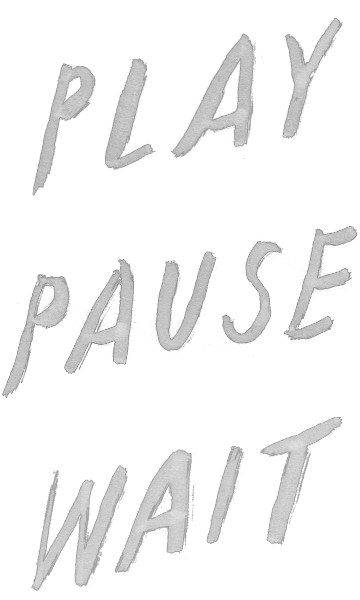 PLAY
PAUSE
WAIT